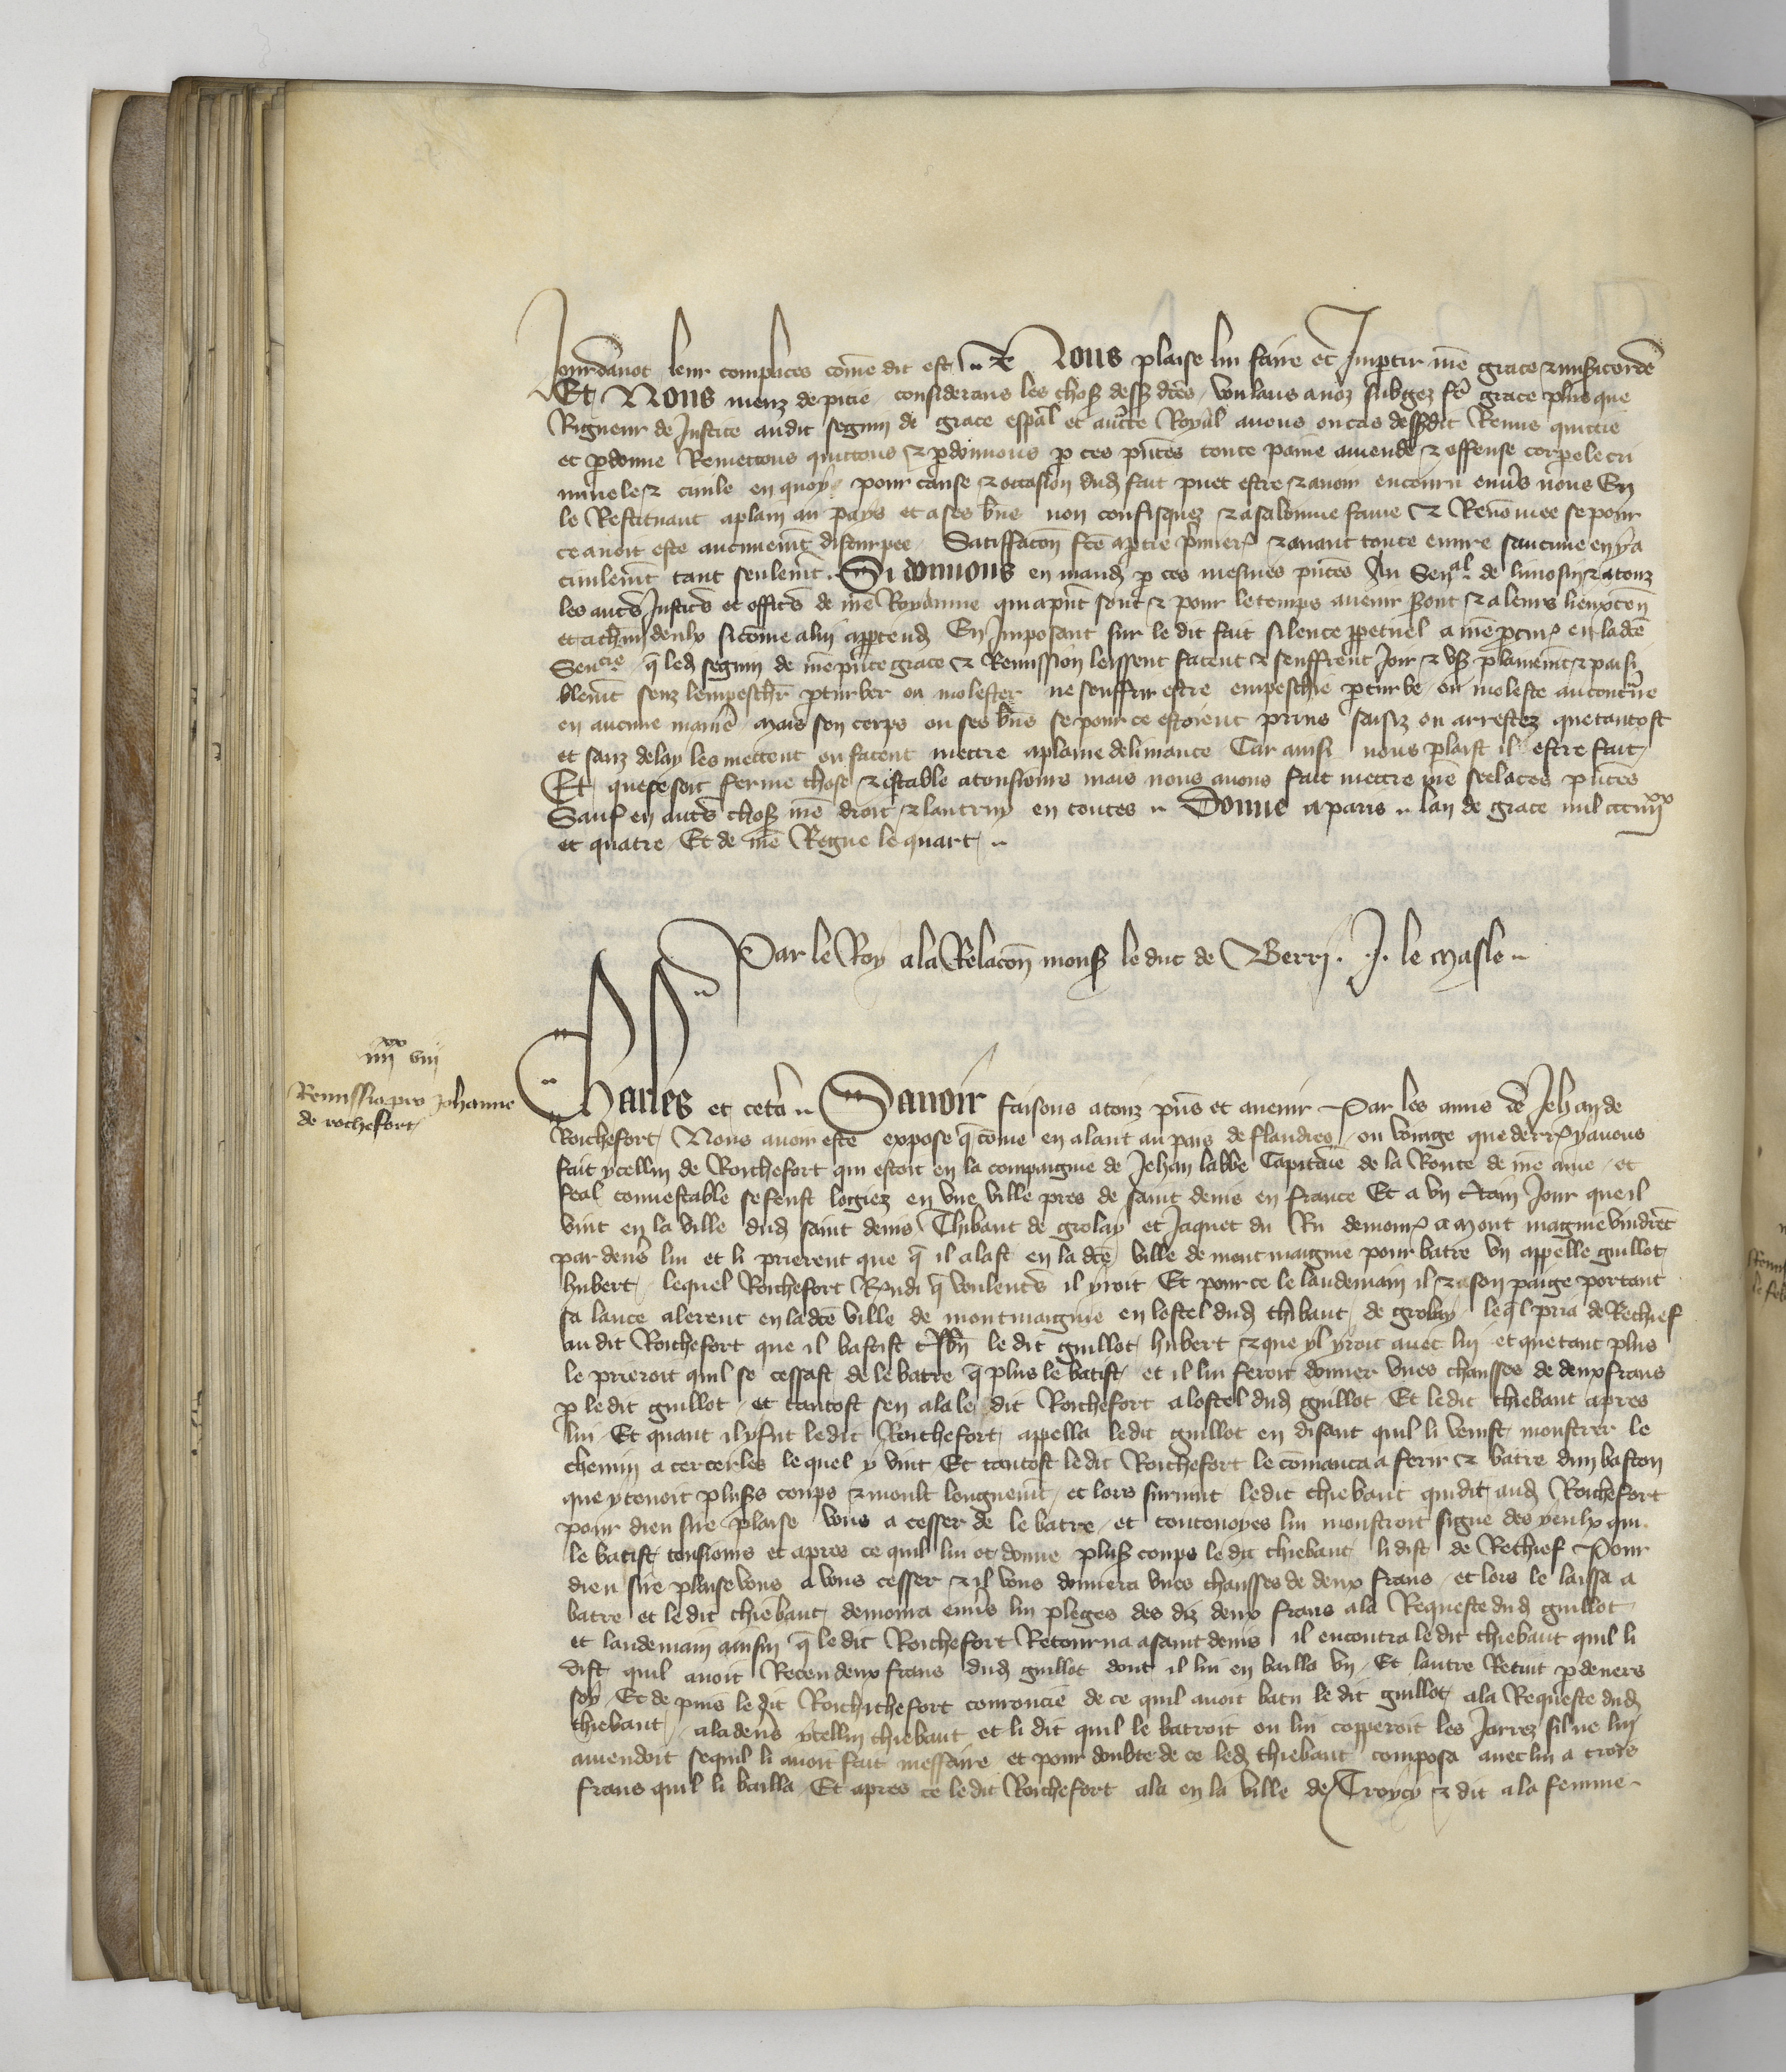 Jourdanot leur complices come dit est Nous plaise lui faire et Impartir nre grace & misericorde
Et Nous meuz de pitie considerans les choses dessus dictes voulans a noz subgez faire grace plus que
Rigueur de Justice audit seguin de grace especial et auctorite Royal avons ou cas dessusdit Remis quictie
et pdonne Remettons quittons & pdonnons p ces pntes toute paine amende & offense corpele cri
minele & civile en quoy pour cause & occasion dud fait puet estre & avoir encouru envs nous En
le Restituant a plain au pays et a ses bns non confisquez & a sa bonne fame & Renomee se pour
ce avoit este aucunemt Satisfacon fce a ptie pmier & avant toute euvre saucune en y a
civilemt tant seulemt Si donnons en mandemt p ces mesmes pntes Au Senal de limosin & a touz
les autrs Justicrs et officrs de nre Royaume qui a pnt sont & pour le temps avenir seront & a leurs lieuxten
et a chun deulx si come a lui apptendra En Imposant sur le dit fait silence ppetuel a nre pcur en ladce
Sencie q led seguin de nre pnte grace & Remission leissent facent & seuffrent Joir & user plainemt & paisi
blemt senz lempescher pturber ou molester ne souffrir estre empeschie pturbe ou moleste au contraire
en aucune maniere mais son corps ou ses bns se pour ce estoient prins saisiz ou arrestez que tantost
et sanz delay les mettent ou facent mettre a plaine delivrance Car ainsi nous plaist il estre fait
Et que ce soit ferme chose & estable a tousiours mais nous avons fait mettre nre seel a ces pntes
Sauf en autrs choses nre droit & lautruy en toutes Donne a paris lan de grace mil ccc iiii xx
et quatre Et de nre Regne le quart
Par le Roy a la Relacon mons le duc de Berry. J. le masle
iiii xx viii
Remissio pro Johanne
de rochefort
Charles et cetera Savoir faisons a touz pns et avenir Par les amis de Jehan de
Roichefort Nous avoir este expose q come en alant au pais de flandres ou voiage que derr y avons
fait ycellui de Roichefort qui estoit en la compaignie de Jehan labbe Capitaine de la Route de nre ame et
feal connestable se feust logiez en vne ville pres de saint denis en france Et a vn ctain Jour que il
vint en la ville dud saint denis Thibaut de grolay et Jaquet du Ru demour a mont magnie vindret
par devs lui et li prierent que q il alast en la dce ville de montmaignie pour batre vn appelle guillot
hubert lequel Roichefort Rndi q voulents il yroit Et pour ce le landemain il & son paige portant
sa lance alerent en ladce ville de montmaignie en lostel dud thibaut de grolay leql pria de Rechief
au dit Roichefort que il batist tsbn le dit guillot hubert & que yl yroit avec lui et que tant plus
le prieroit quil se cessast de le batre q plus le batist et il lui feroit donner vnes chausses de deux frans
p le dit guillot et tantost sen ala le dit Roichefort a lostel dud guillot Et le dit thiebaut apres
lui Et quant il y fut le dit Roichefort appella ledit guillot en disant quil li venist monstrer le
chemin a cercerles lequel y vint Et tantost le dit Roichefort le comanca a ferir & batre dun baston
que y tenoit pluss coups & moult longuemt et lors survint ledit thiebaut qui dit aud Roichefort
pour dieu sire plaise vous a cesser de le batre et toutevoyes lui monstroit signe des yeulx qui
le batist tousiours et apres ce quil lui ot donne pluss coups le dit thiebaut li dist de Rechief Pour
dieu sire plaise vous a vous cesser & il vous donnera vnes chausses de deux frans et lors le laissa a
batre et le dit thiebaut demoura envs lui pleges des diz deux frans a la Requeste dud guillot
et landemain ainsin q le dit Roichefort Retourna a saint denis il encontra le dit thiebaut quil li
dist quil avoit Receu deux frans dud guillot dont il lui en bailla vn Et lautre Retint p devers
soy Et de puis le dit Roichichefort courroucie de ce quil avoit batu le dit guillot a la Requeste dud
thiebaut ala devs ycellui thiebaut et li dit quil le batroit ou lui copperoit les Jarrez sil ne lui
amendoit se quil li avoit fait meffaire et pour doubte de ce led thiebaut composa avec lui a trois
frans quil li bailla Et apres ce le dit Roichefort ala en la ville de Troycy & dit a la femme